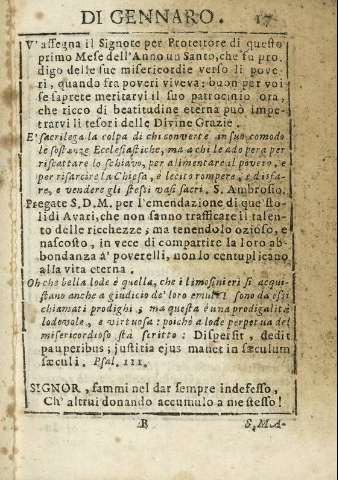 DI GENNARO. 17
V' assegna il Signore per Protettore di questo
primo Mese dell'Anno un Santo, che fu pro-
digo delle sue misericordie verso li pove-
ri, quando fra poveri viveva: buon per voi
se saprete meritarvi il suo patrocinio ora,
che ricco di beatitudine eterna può impe-
trarvi li tesori delle Divine Grazie.
E' sacrilega la colpa di chi converte in suo comodo
le sostanze Ecclesiastiche, ma a chi le adopera per
riscattare lo schiavo, per alimentare il povero, e
per risarcire la Chiesa, è lecito rompere, e disfa-
re, e vendere gli stessi vasi sacri. S. Ambrosio.
Pregate S. D. M. per l'emendazione di que' sto-
lidi Avari, che non sanno trafficare il talen-
to delle ricchezze; ma tenendolo ozioso, e
nascosto, in vece di compartire la loro ab-
bondanza á' poverelli, non lo centuplicano
alla vita eterna.
Oh che bella lode è quella, che i limosinieri si acqui-
stano anche a giudicio de' loro emuli! sono da essi
chiamati prodighi; ma questa è una prodigalità
lodevole, e virtuosa: poichè a lode perpetua del
misericordioso sta scritto: Dispersit, dedit
pauperibus; justitia ejus manet in sæculum
sæculi. Psal. 111.
SIGNOR, fammi nel dar sempre indefesso,
Ch' altrui donando accumulo a me stesso!
B S. MA-